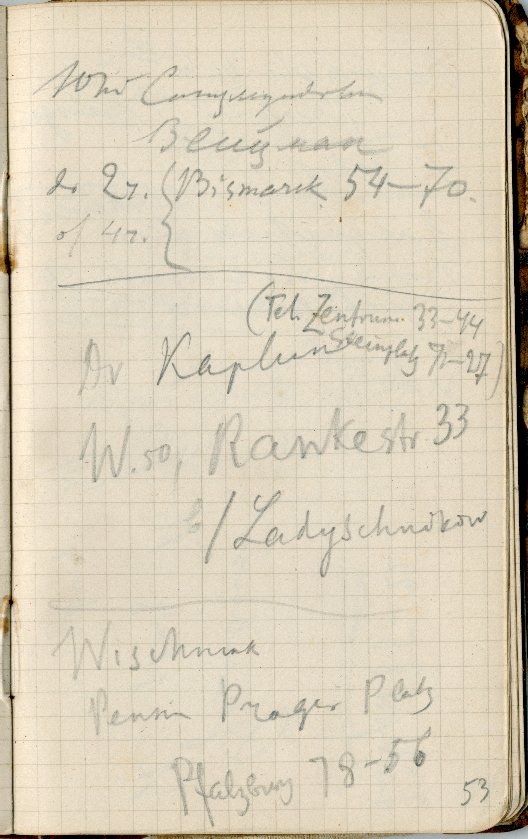 Вейцман
до 2 ч. (Bismarck 54–70.
от 4 ч.
(Tel. Zentrum 33–44
Steinplatz 71–27)
Dr Kaplun
W. 50, Rankestr 33
b/Ladyschnikow
Wischniak
Pension Prager Platz
Pfalzburg 78–56
53